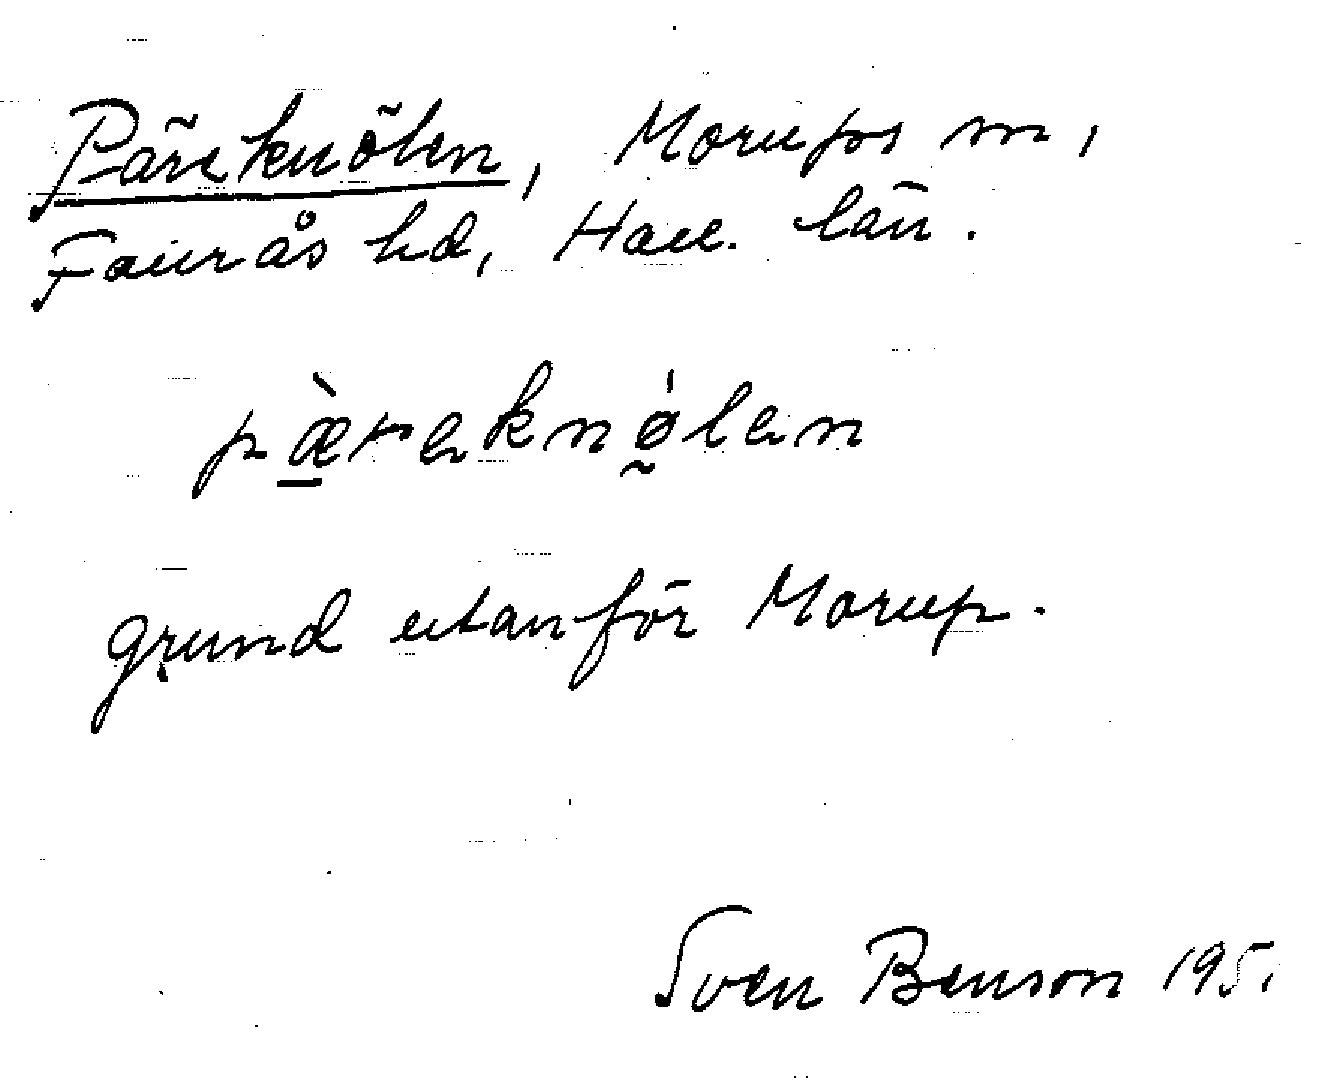 Päreknölen, Morups sn,
Faurås hd, Hall. län.
pæ̠̀rəknǿ̰lən
grund utanför Morup.
Sven Benson 1951